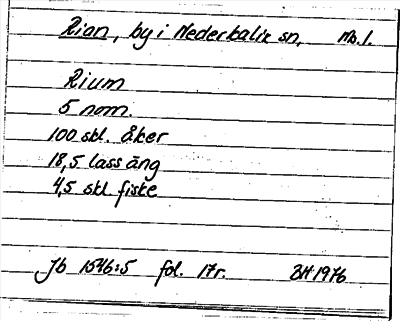 Rian, by i Nederkalix sn, Nb. l.
Rium
5 nom.
100 skl. åker
18,5 lass äng
4,5 skl fiske
Jb 1546:5 fol. 17r. BH 1976